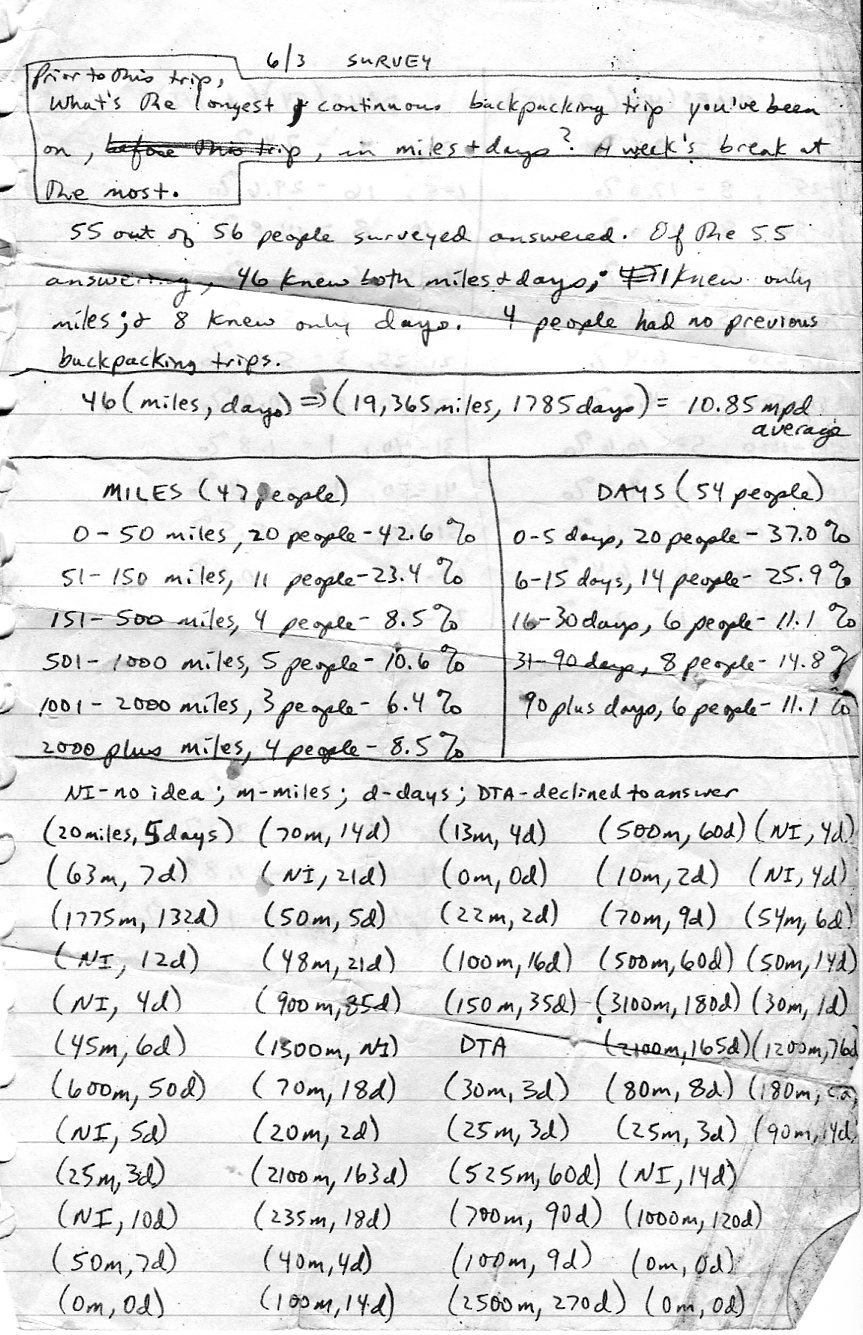 6/3 SURVEY
Prior to this trip,
What's the longest, continuous backpacking trip you've been
on, before this trip, in miles + days? A week's break at
the most.
55 out of 56 people surveyed answered. Of the 55
answering, 46 knew both miles & days; 1 knew only
miles; & 8 knew only days. 4 people had no previous
backpacking trips.
46 (miles, days) ⇒ (19,365 miles, 1785 days) = 10.85 mpd
average
MILES (47 people)
0-50 miles, 20 people - 42.6 %
51-150 miles, 11 people - 23.4 %
151-500 miles, 4 people - 8.5 %
501-1000 miles, 5 people - 10.6 %
1001-2000 miles, 3 people - 6.4 %
2000 plus miles, 4 people - 8.5 %
DAYS (54 people)
0-5 days, 20 people - 37.0 %
6-15 days, 14 people - 25.9 %
16-30 days, 6 people - 11.1 %
31-90 days, 8 people - 14.8 %
90 plus days, 6 people - 11.1 %
NI-no idea; m-miles; d-days; DTA-declined to answer
(20 miles, 5 days) (70m, 14d) (13m, 4d) (500m, 60d) (NI, 4d)
(63m, 7d) (NI, 21d) (0m, 0d) (10m, 2d) (NI, 4d)
(1775m, 132d) (50m, 5d) (22m, 2d) (70m, 9d) (54m, 6d)
(NI, 12d) (48m, 21d) (100m, 16d) (500m, 60d) (50m, 14d)
(NI, 4d) (900m, 85d) (150m, 35d) (3100m, 180d) (30m, 1d)
(45m, 6d) (1300m, NI) DTA (2100m, 165d) (1200m, 76d
(600m, 50d) (70m, 18d) (30m, 3d) (80m, 8d) (180m,
(NI, 5d) (20m, 2d) (25m, 3d) (25m, 3d) (90m, 14d)
(25m, 3d) (2100m, 163d) (525m, 60d) (NI, 14d)
(NI, 10d) (235m, 18d) (700m, 90d) (1000m, 120d)
(50m, 7d) (40m, 4d) (100m, 9d) (0m, 0d)
(0m, 0d) (100m, 14d) (2500m, 270d) (0m, 0d)